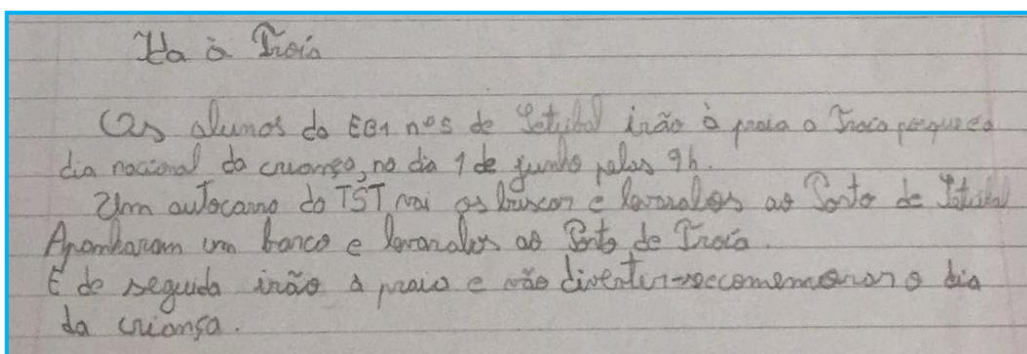 Ida à Troia
Os alunos da EB1 nº5 de Setúbal irão à praia a Troia porque é o
dia nacional da criança, no dia 1 de junho pelas 9h.
Um autocarro da TST vai os buscar e levaralos ao Porto de Setúbal
Apanharam um barco e levaralos ao Porto de Troia.
E de seguida irão à praia e vão divertir-se comemorar o dia
da criança.